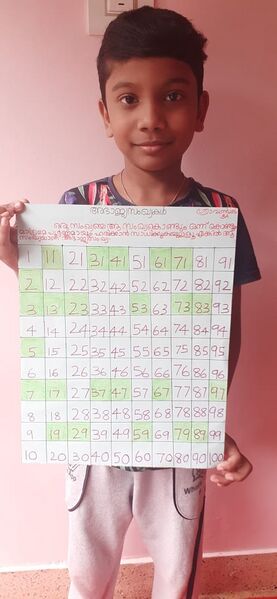 അഭാജ്യസംഖ്യകൾ
ഒരു സംഖ്യയെ ആ സംഖ്യകൊണ്ടും ഒന്ന് കൊണ്ടും
മാത്രമേ പൂർണ്ണമായും ഹരിക്കാൻ സാധിക്കുകയുള്ളൂ എങ്കിൽ ആ
സംഖ്യയാണ് അഭാജ്യസംഖ്യ.
1 11 21 31 41 51 61 71 81 91
2 12 22 32 42 52 62 72 82 92
3 13 23 33 43 53 63 73 83 93
4 14 24 34 44 54 64 74 84 94
5 15 25 35 45 55 65 75 85 95
6 16 26 36 46 56 66 76 86 96
7 17 27 37 47 57 67 77 87 97
8 18 28 38 48 58 68 78 88 98
9 19 29 39 49 59 69 79 89 99
10 20 30 40 50 60 70 80 90 100